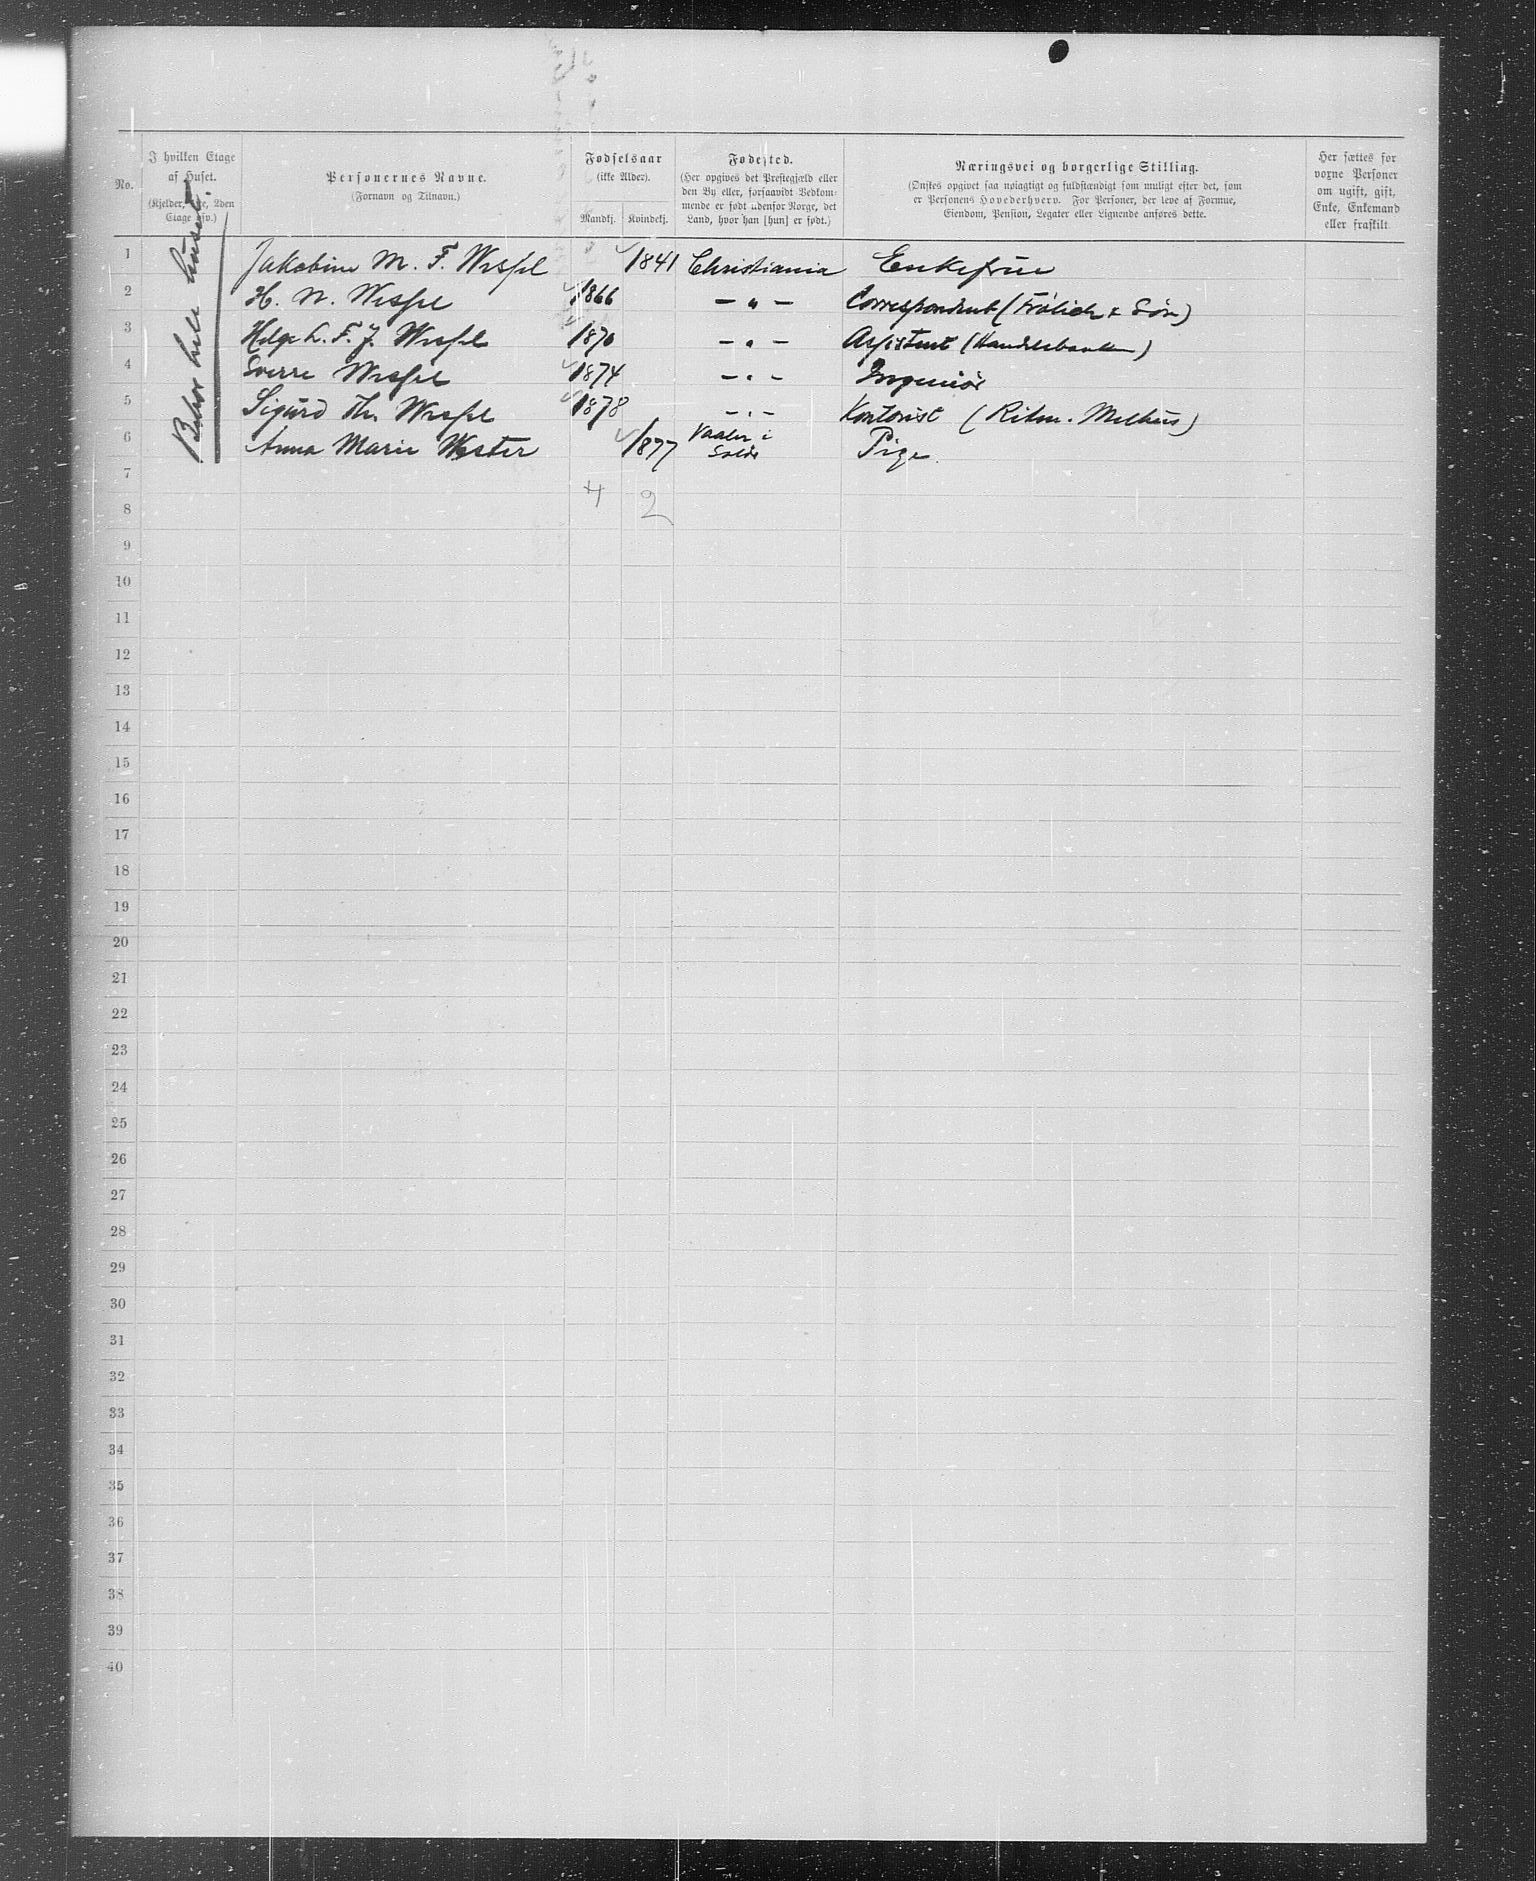 No.
I hvilken Etage af Huset.
(Kjelder, 1ste, 2den Etage osv.)
Personernes Navne.
(Fornavn og Tilnavn.)
Fødselsaar
(ikke Alder).
Mandkj.
Kvindekj.
Fødested.
(Her opgives det Prestegjæld eller
den By eller, forsaavidt Vedkom-
mende er født udenfor Norge, det
Land, hvor han [hun] er født.)
Næringsvei og borgerlige Stilling.
(Ønskes opgivet saa nøiagtigt og fuldstændigt som muligt efter det, som
er Personens Hovederhverv. For Personer, der leve af Formue,
Eiendom, Pension, Legater eller Lignende anføres dette.
Her sættes for
voxne Personer
om ugift, gift,
Enke, Enkemand
eller fraskilt
Bebor hele huset
1 Jakobine M. F. Wessel 1841 Christiania Enkefrue
2 H. N. Wessel 1866 — " — Correspondent (Frölich & Søn)
3 Helge L. F. J. Wessel 1870 — " — Assistent (Handelsbanken)
4 Sverre Wessel 1874 — " — Ingeniør
5 Sigurd Th. Wessel 1878 — " — Kontorist (Ritm. Melhus)
6 Anna Marie Wester 1877 Vaaler i Solør Pige
7
4 2
8
9
10
11
12
13
14
15
16
17
18
19
20
21
22
23
24
25
26
27
28
29
30
31
32
33
34
35
36
37
38
39
40